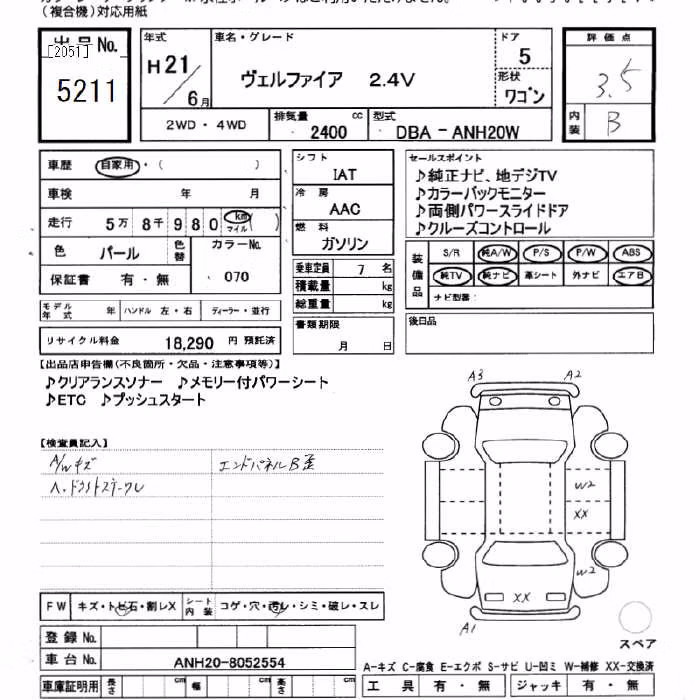 (複合機)対応用紙
出品No.
[2051]
5211
年式
H21
6月
車名・グレード
ヴェルファイア 2.4V
ドア
5
形状
ワゴン
評価点
3.5
内装
B
2WD・4WD
排気量
2400 cc
型式
DBA-ANH20W
車歴 自家用・( )
車検 年 月
走行 5万 8千 980 km マイル ( )
色 パール
色替
カラーNo.
070
保証書 有・無
モデル年式 年 ハンドル 左・右 ディーラー・並行
リサイクル料金 18,290 円 預託済
シフト
IAT
冷房
AAC
燃料
ガソリン
乗車定員 7 名
積載量 kg
総重量 kg
書類期限
月 日
セールスポイント
♪純正ナビ、地デジTV
♪カラーバックモニター
♪両側パワースライドドア
♪クルーズコントロール
装備品
S/R 純A/W P/S P/W ABS
純TV 純ナビ 革シート 外ナビ エアB
ナビ型番:
後日品
【出品店申告欄(不良箇所・欠品・注意事項等)】
♪クリアランスソナー ♪メモリー付パワーシート
♪ETC ♪プッシュスタート
【検査員記入】
A/Wキズ
エンドパネルB歪
A3
A2
W2
XX
W2
XX
A1
スペア
FW キズ・トビ石・割レX
シート内装 コゲ・穴・汚レ・シミ・破レ・スレ
登録No.
車台No. ANH20-8052554
車庫証明用 長さ cm 幅 cm 高さ cm
A-キズ C-腐食 E-エクボ S-サビ U-凹ミ W-補修 XX-交換済
工具 有・無 ジャッキ 有・無